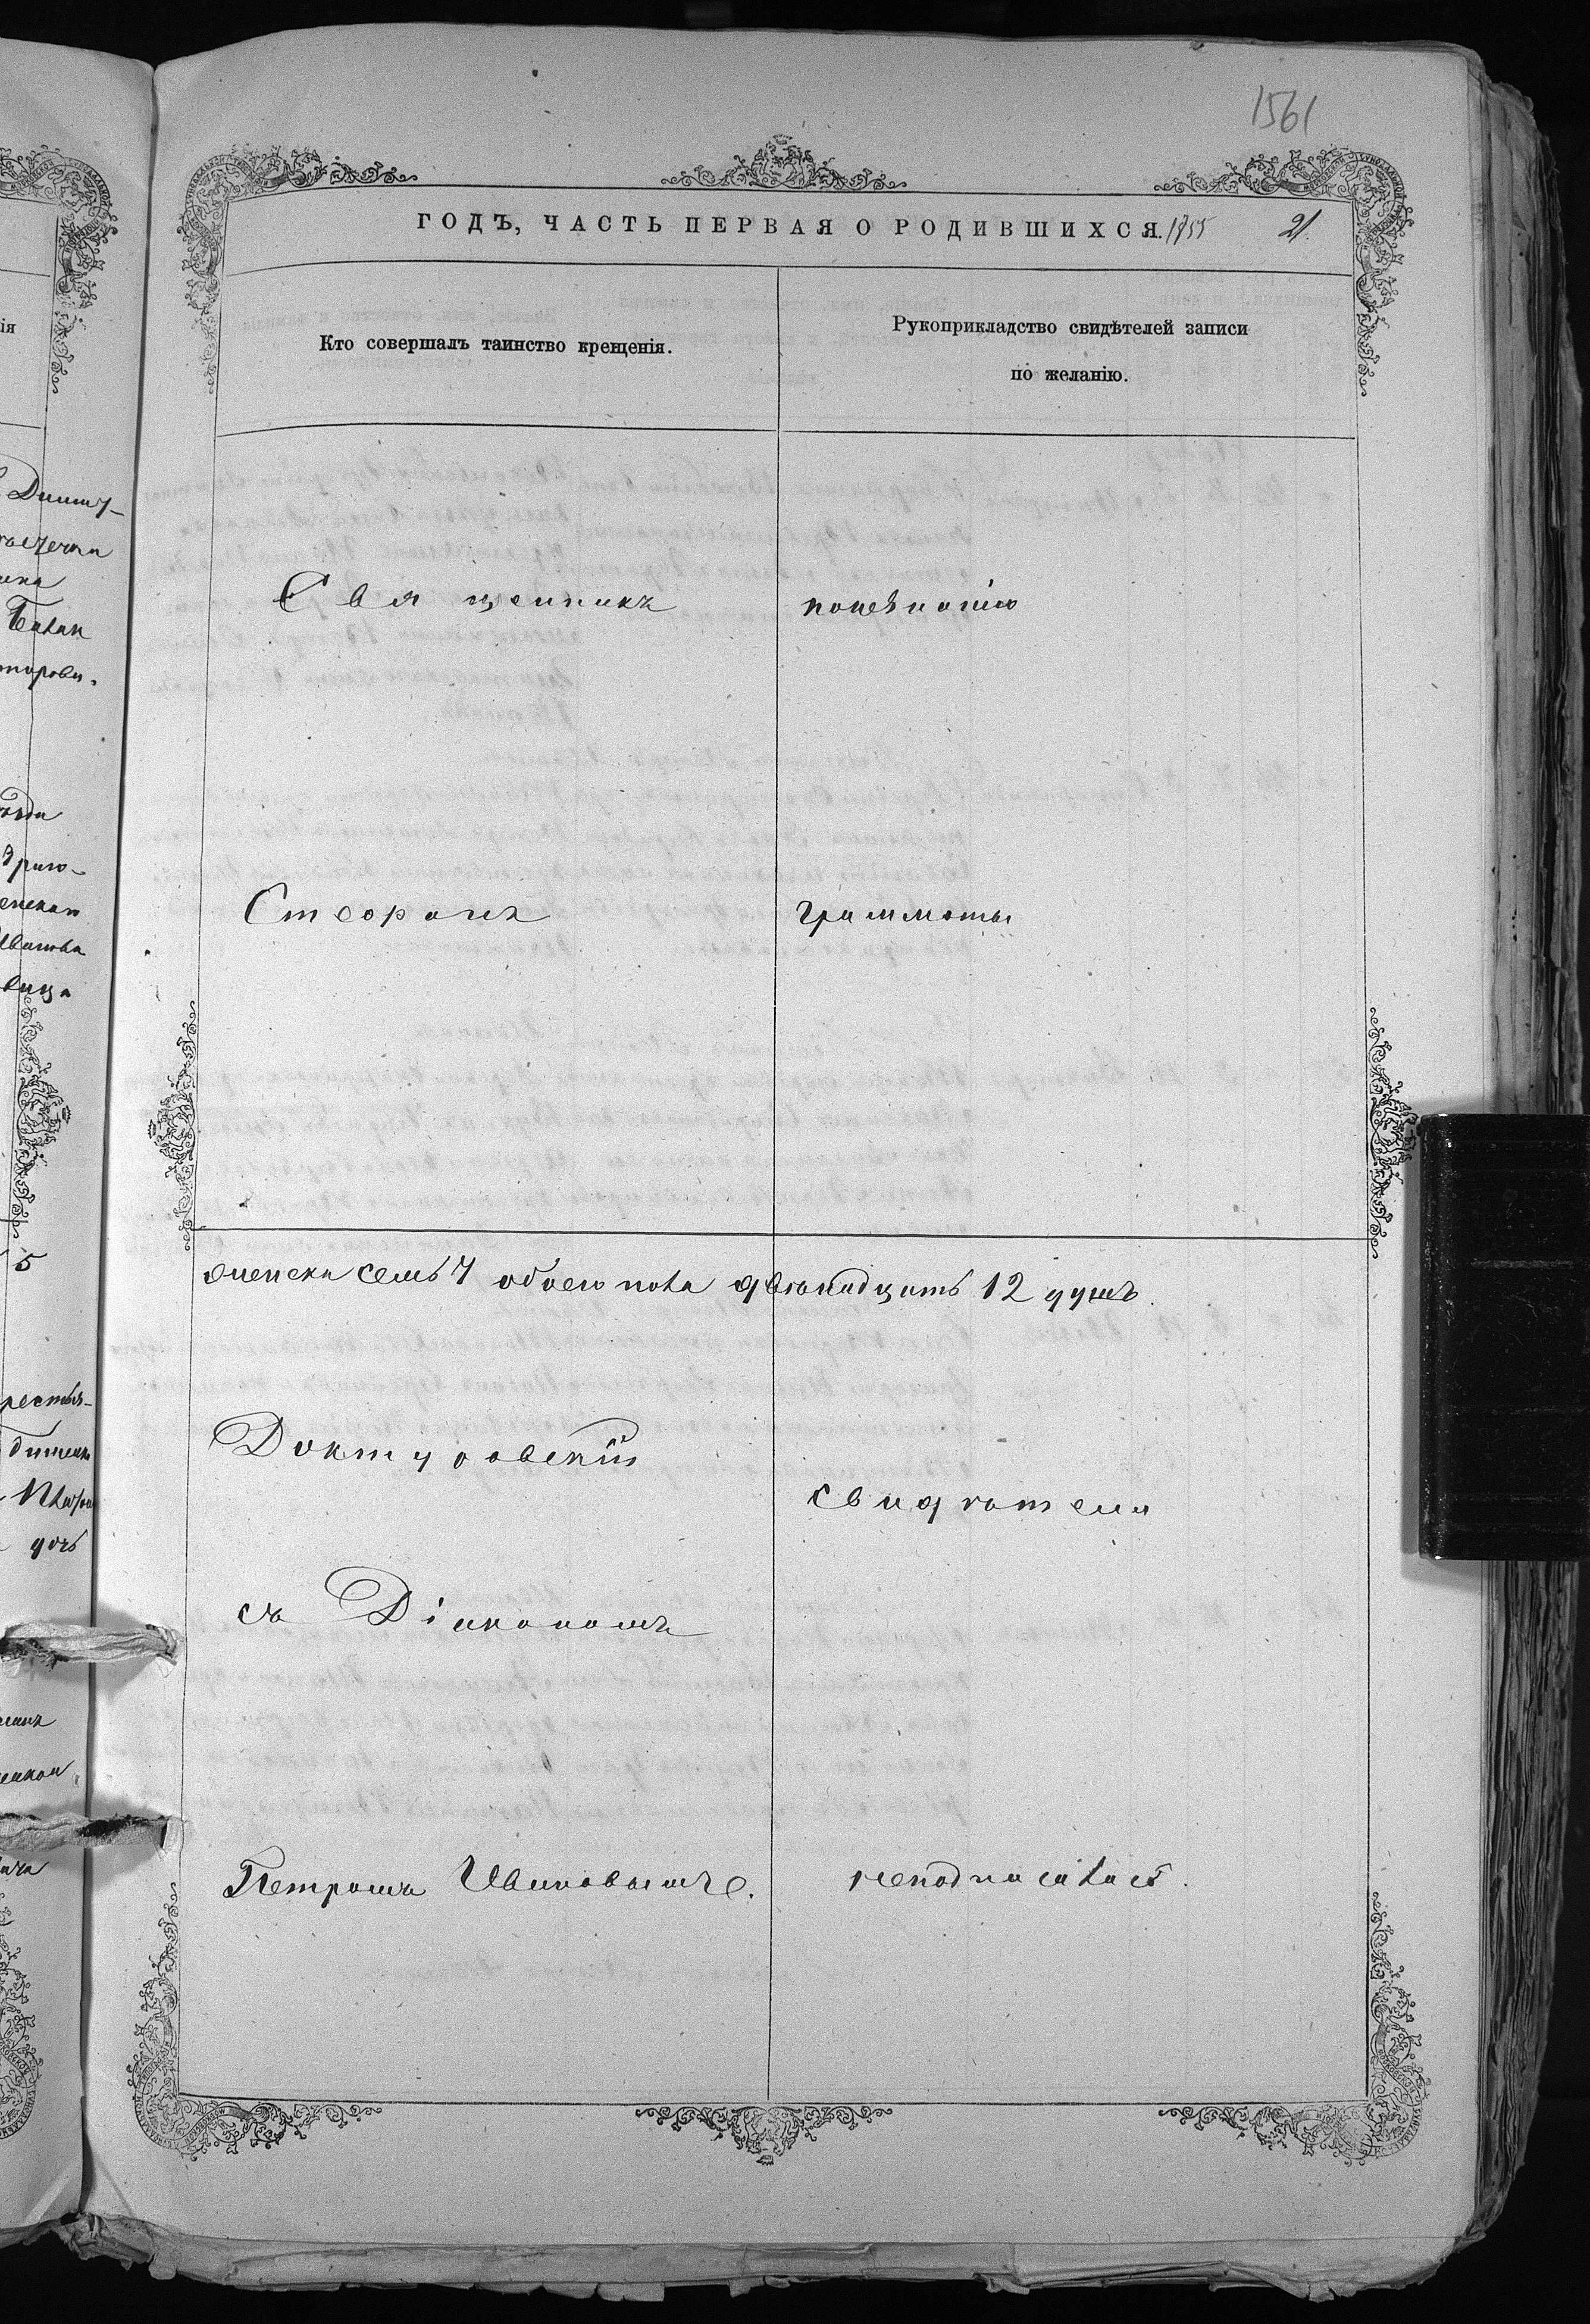 1561
ГОДЪ, ЧАСТЬ ПЕРВАЯ О РОДИВШИХСЯ.
21.
Кто совершалъ таинство крещенія.
Рукоприкладство свидѣтелей записи
по желанію.
Священникъ
понезнанію
Стефанъ
граммоты
женска семь 7 обоего пола двѣнадцать 12 душъ.
Доктуровскій
свидѣтели
съ Діакономъ
Петромъ Ивановымъ.
неподписались.
ія
Бабак
5
дочь